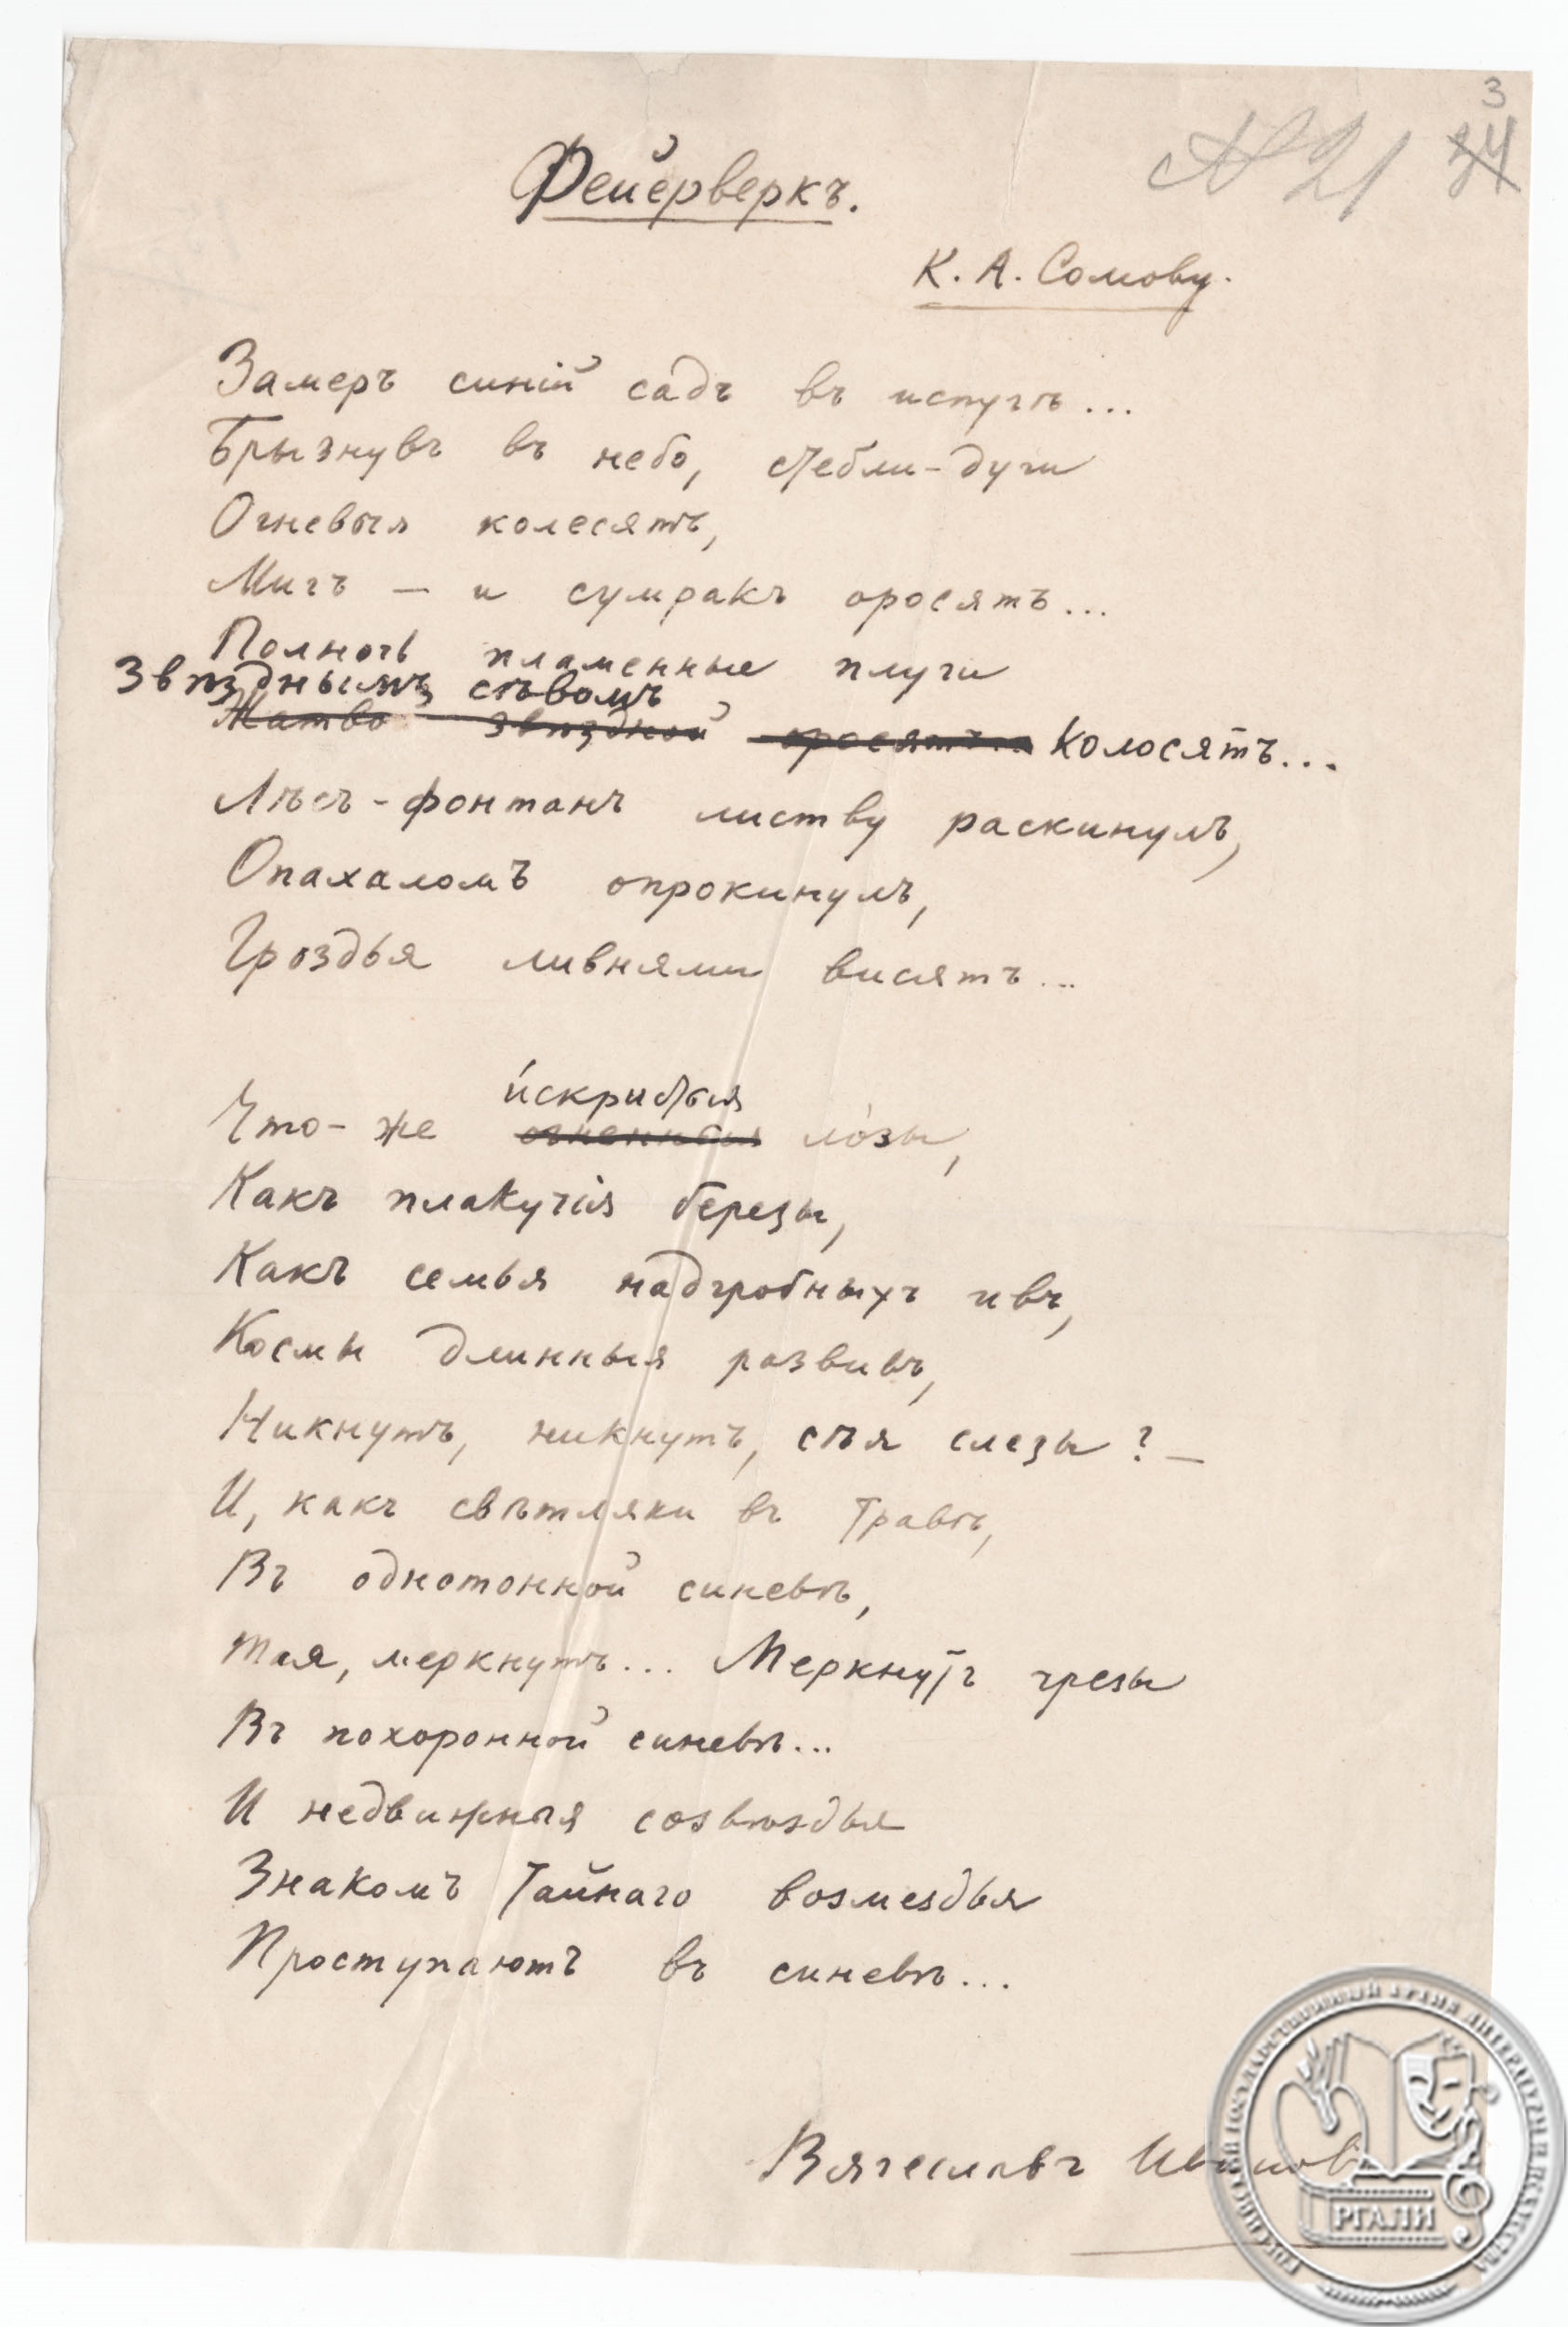 3
№ 21 34
Фейерверкъ.
К. А. Сомову.
Замеръ синій садъ въ испугѣ...
Брызнувъ въ небо, стебли-дуги
Огневыя колесятъ,
Мигъ — и сумракъ оросятъ...
Полночь пламенные плуги
Звѣзднымъ сѣвомъ
Жатво звѣздной оросятъ... колосятъ...
Лѣсъ-фонтанъ листву раскинулъ,
Опахаломъ опрокинулъ,
Гроздья ливнями висятъ...
и́скристыя
Что-же огненныя ло́зы,
Какъ плакучія березы,
Какъ семья надгробныхъ ивъ,
Космы длинныя развивъ,
Никнутъ, никнутъ, сѣя слезы? —
И, какъ свѣтляки въ травѣ,
Въ однотонной синевѣ,
Тая, меркнутъ... Меркнутъ грезы
Въ похоронной синевѣ...
И недвижныя созвѣздья
Знакомъ тайнаго возмездья
Проступаютъ въ синевѣ...
Вячеславъ Ивановъ
РОССИЙСКИЙ ГОСУДАРСТВЕННЫЙ АРХИВ ЛИТЕРАТУРЫ И ИСКУССТВА
РГАЛИ